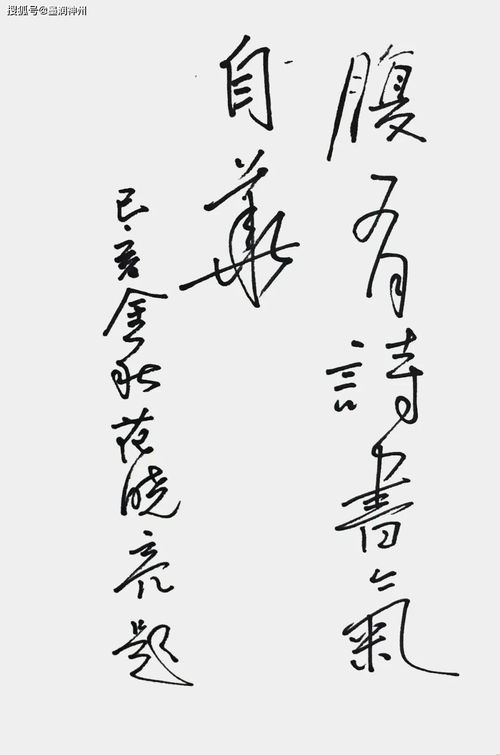 搜狐号@墨润神州
腹有詩書氣
自華
己亥金秋范晓亮题